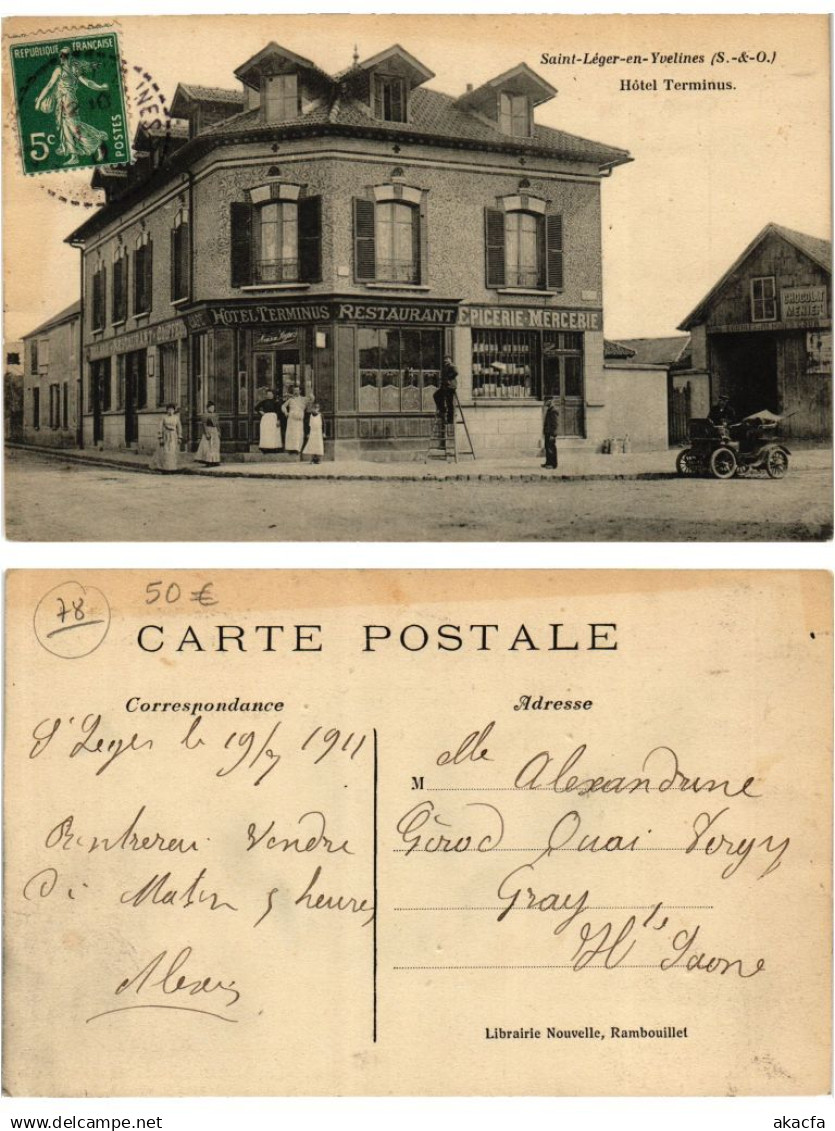 Saint-Léger-en-Yvelines (S.-&-O.)
Hôtel Terminus.
REPUBLIQUE FRANÇAISE
5c POSTES
INES
CAFÉ HOTEL TERMINUS RESTAURANT EPICERIE-MERCERIE
CHOCOLAT
MENIER
78
50 €
CARTE POSTALE
Correspondance
Adresse
St Leger le 19/7 1911
Rentrerai Vendre
di Matin 5 heures
Alexis
Melle Alexandrine
Gérod Quai Vergy
Gray
Hte Saone
Librairie Nouvelle, Rambouillet
akacfa